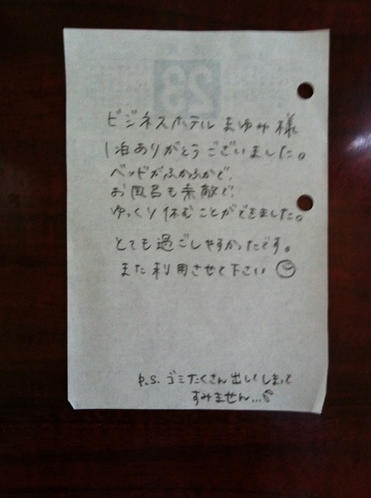 23
ビジネスホテル まゆみ 様
1泊ありがとうございました。
ベッドがふかふかで、
お風呂も素敵で、
ゆっくり休むことができました。
とても過ごしやすかったです。
また利用させて下さい
P.S. ゴミたくさん出してしまって
すみません...